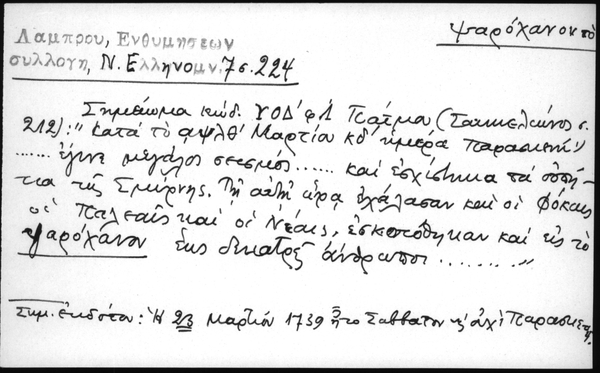 ψαρόχανον τὸ
Λαμπρου, Ενθυμησεων
συλλογη, Ν. Ελληνομν. 7 σ. 224
Σημείωμα κώδ. ΥΟΔ' φ. 1 Πάτμο (Σακκελίωνος σ.
212): "κατὰ τὸ αψλθ' Μαρτίου κδ' ἡμέρα παρασκευῆ
...... ἔγινε μεγάλος σεισμὸς ...... καὶ ἐσχίστηκα τὰ
τια τῆς Σμύρνης. Τῇ αὐτῇ ὥρᾳ ἐχάλασαν καὶ οἱ Φόκαις
οἱ Παλεαῖς καὶ οἱ Νέαις, ἐσκοτόθηκαν καὶ εἰς τὸ
Ψαρόχάνον ἕως δεκατρεῖ ἀνθρωποι ........"
Σημ. ἐκδότου: Ἡ 23 Μαρτίου 1739 ἦτο Σάββατον κ' ὀχὶ Παρασκευή.